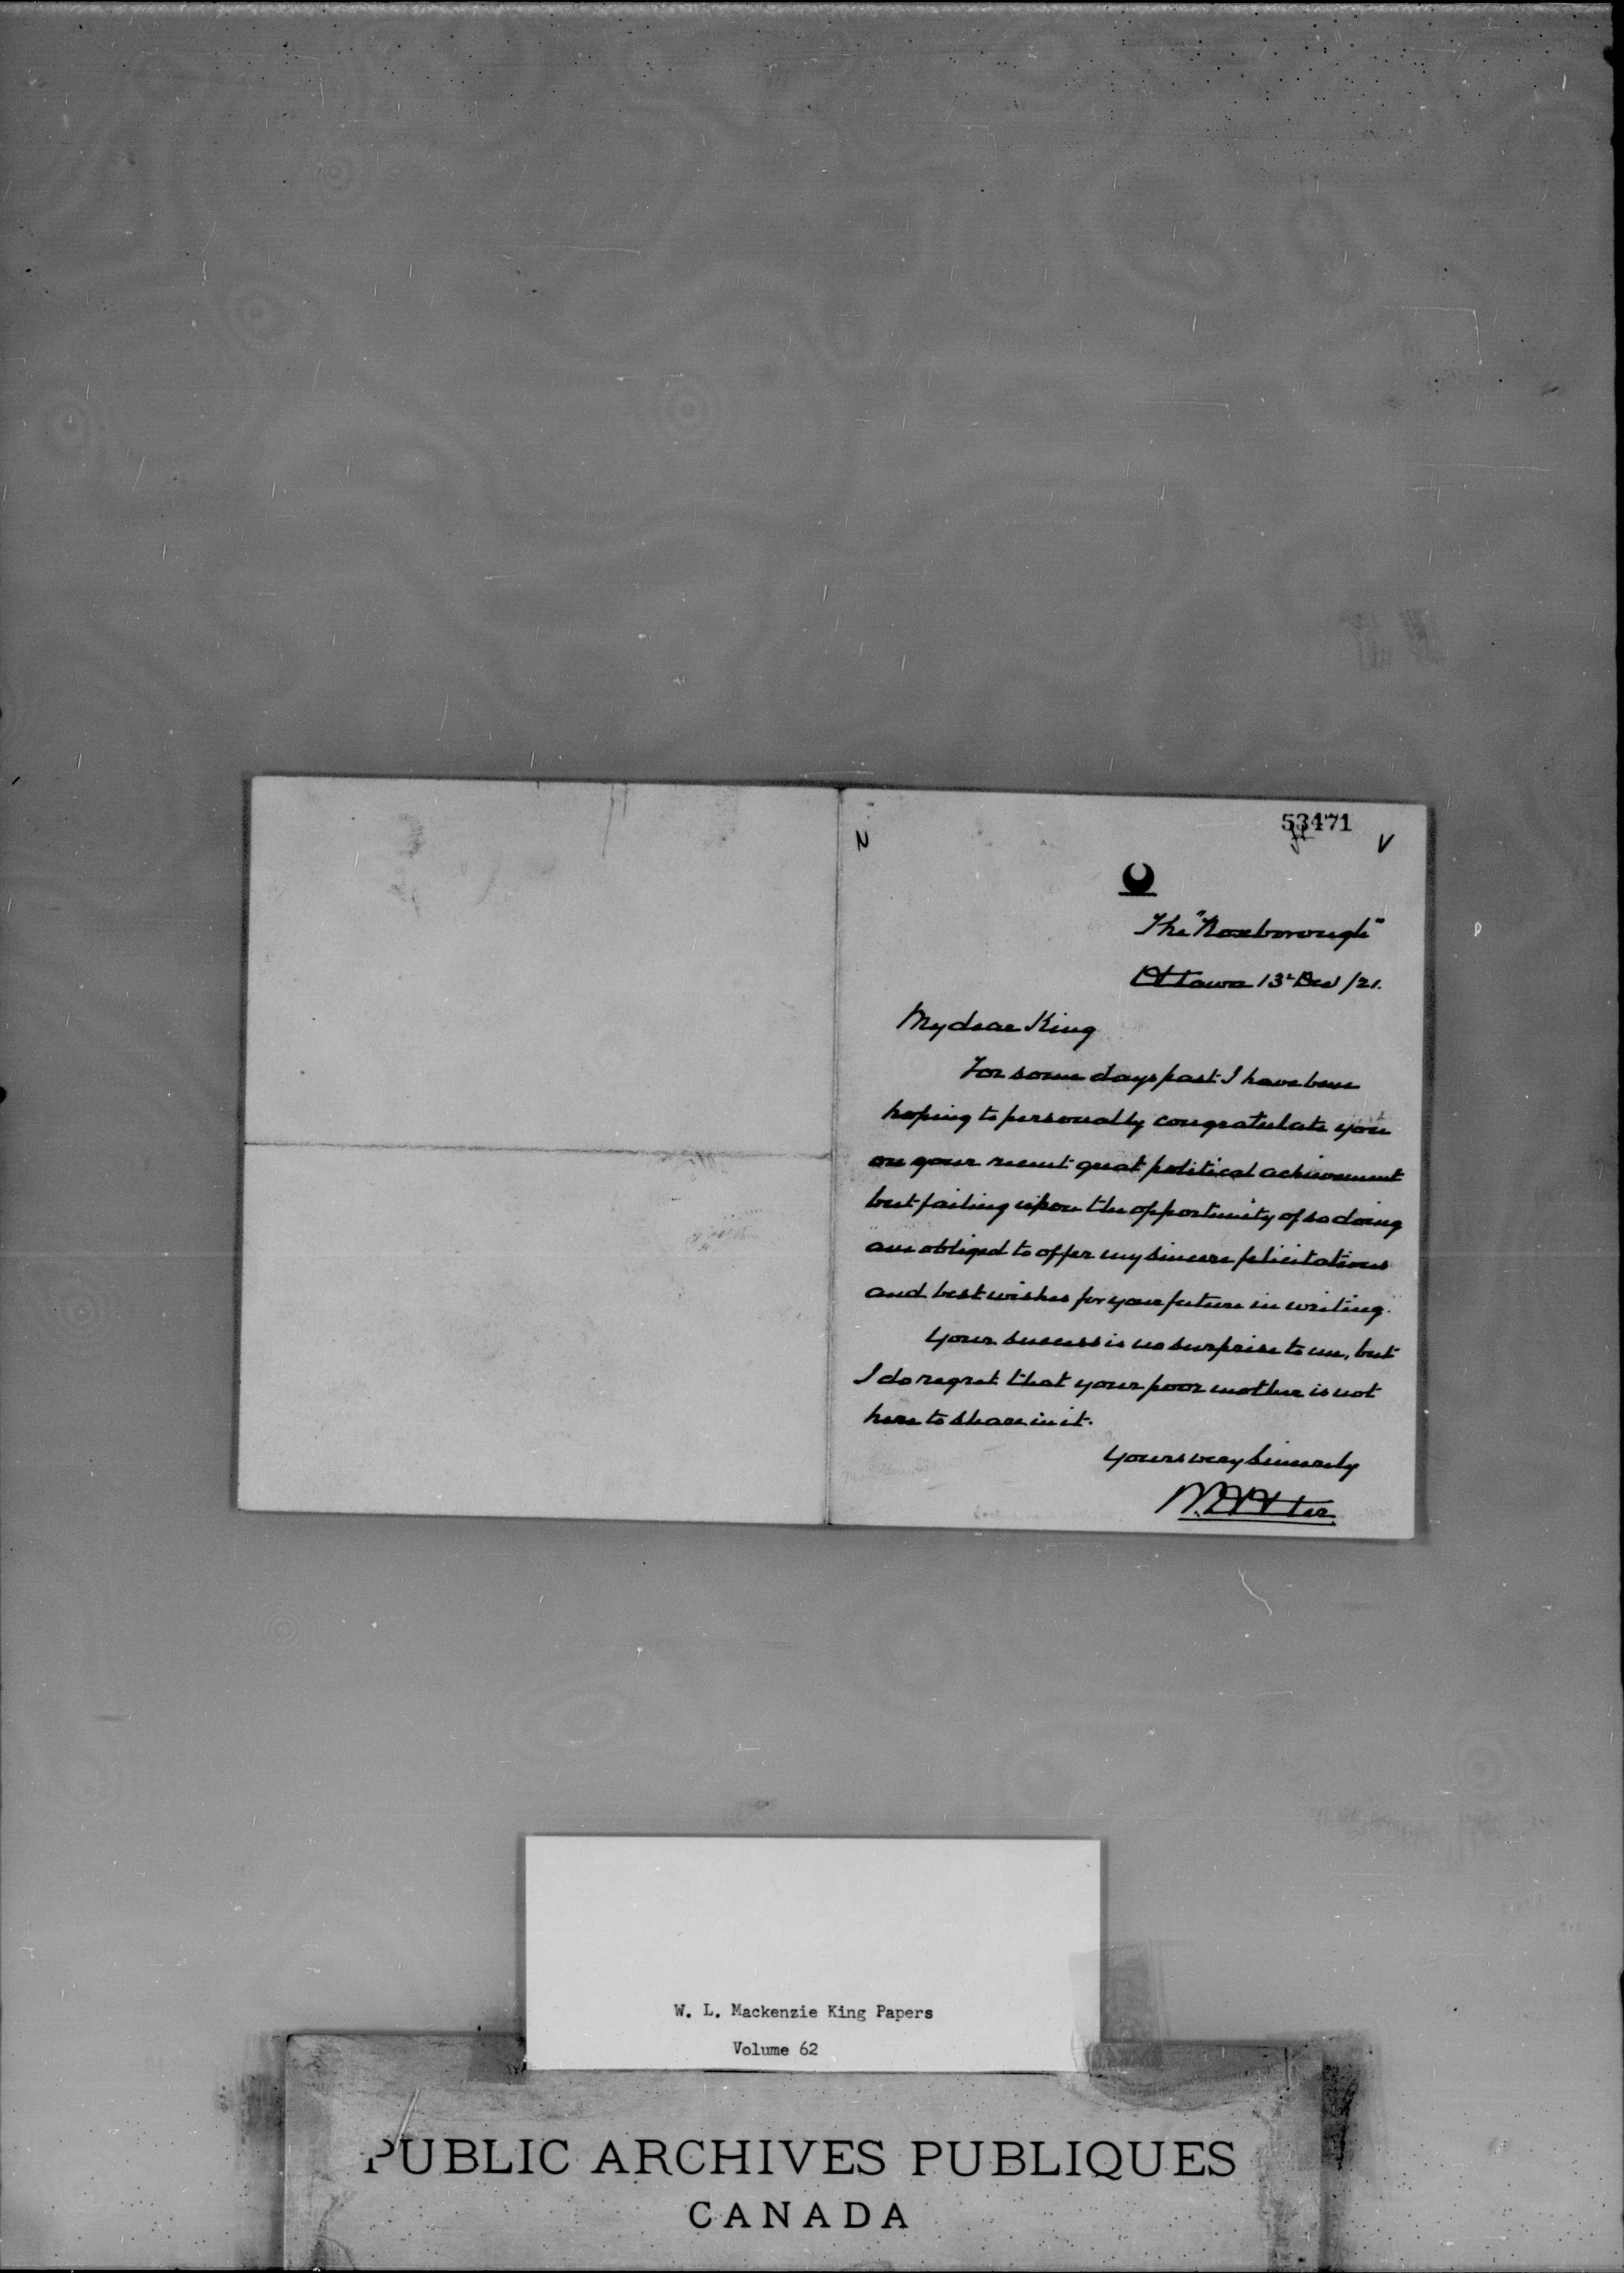 53471
The "Roxborough"
Ottawa 13th Dec /21.
My dear King
For some days past I have been
hoping to personally congratulate you
on your recent great political achievement
but failing upon the opportunity of so doing
am obliged to offer my sincere felicitations
and best wishes for your future in writing.
Your success is no surprise to me, but
I do regret that your poor mother is not
here to share in it.
Yours very sincerely
W. D. Otter
W. L. Mackenzie King Papers
Volume 62
PUBLIC ARCHIVES PUBLIQUES
CANADA